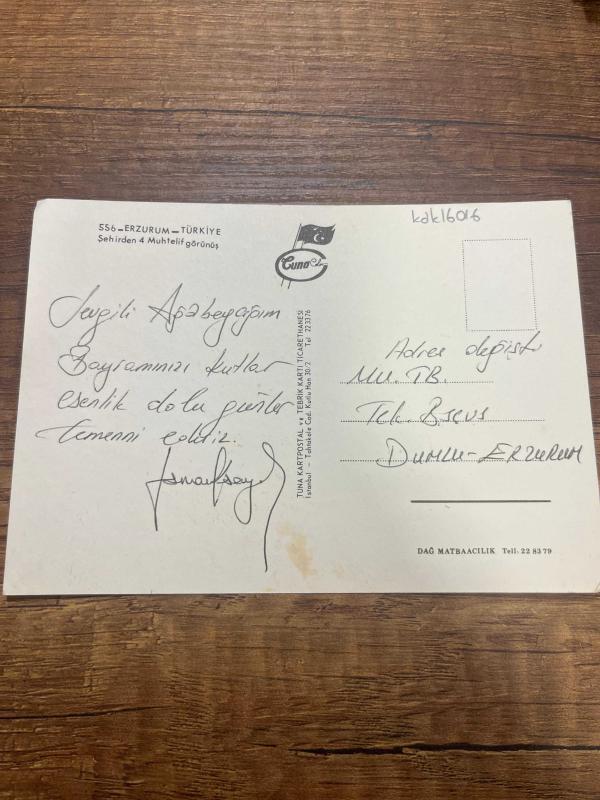 556_ERZURUM_TÜRKİYE
Şehirden 4 Muhtelif görünüş
kdk16016
Tuna
Sevgili Ağabeyciğim
Bayramınızı kutlar
esenlik dolu günler
temenni ederiz.
TUNA KARTPOSTAL ve TEBRİK KARTI TİCARETHANESİ
İstanbul – Tahtakale Cad. Kutlu Han 30/2 Tel 22 33 76
Adres değişti
MU. TB.
Tek.
DUMLU-ERZURUM
DAĞ MATBAACILIK Tell: 22 83 79